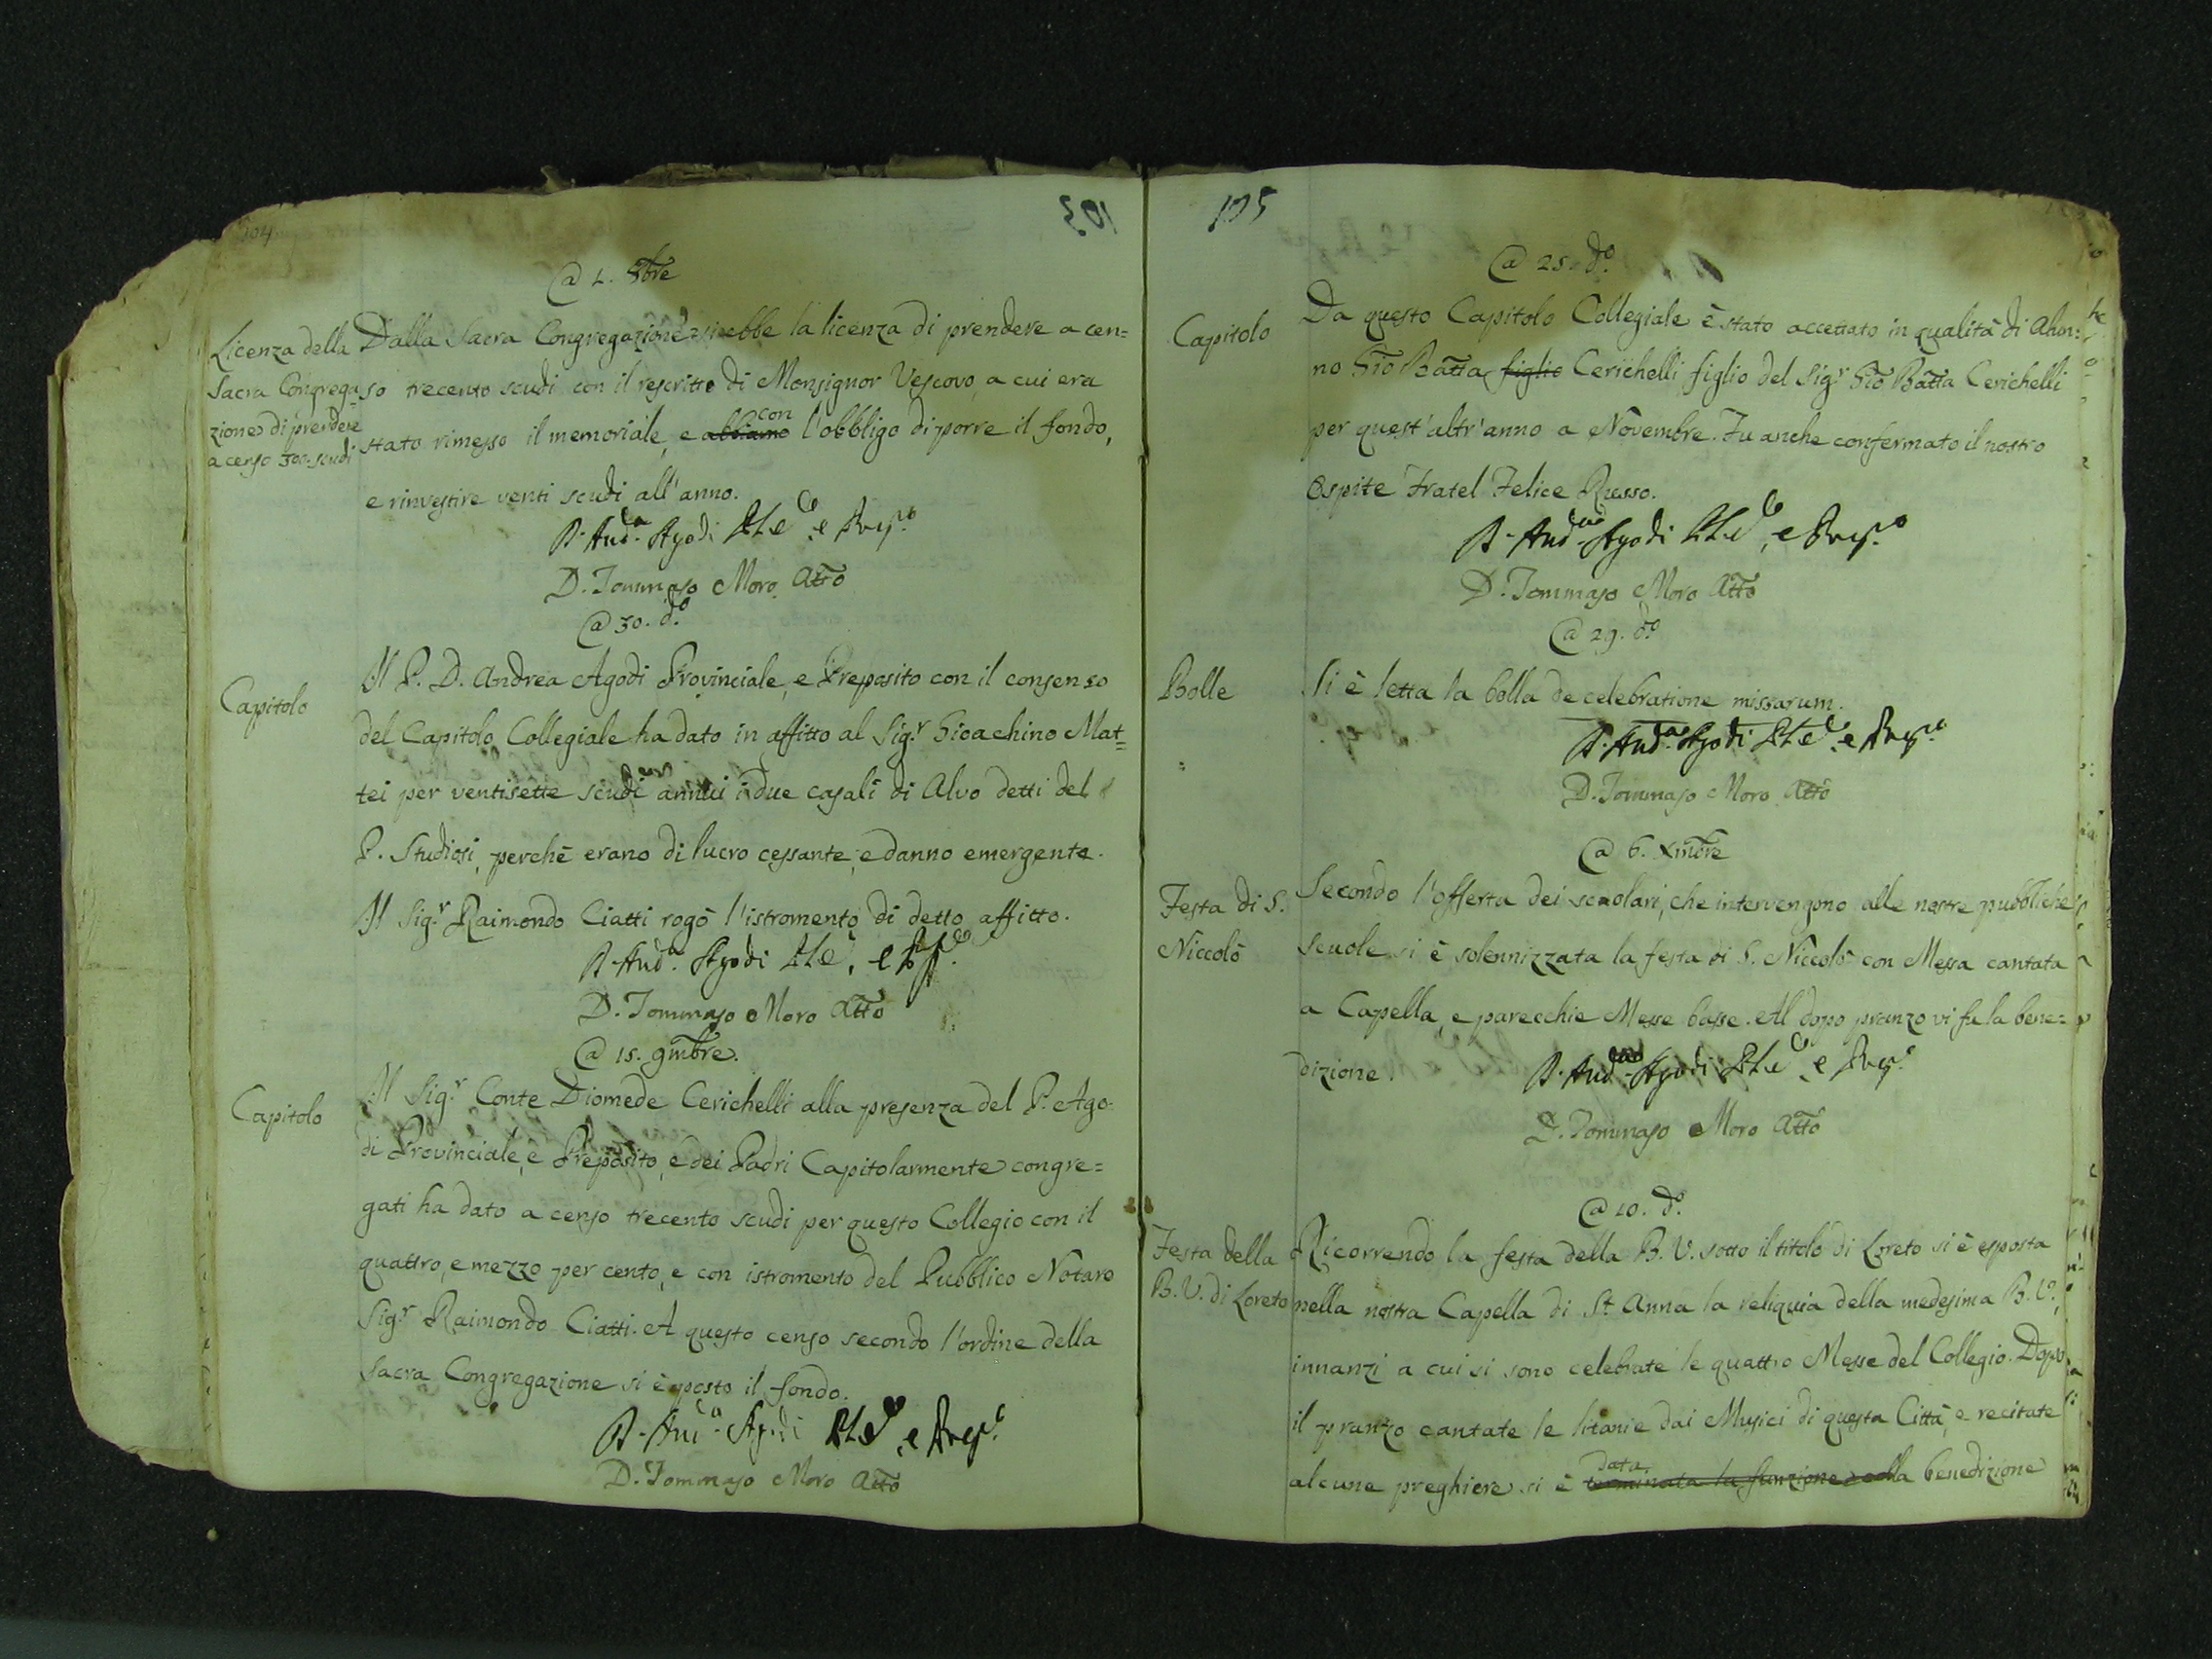 104
@ 1. 8bre
Licenza della
Sacra Congrega=
zione di prendere
a censo 300. scudi
Dalla Sacra Congregazione si ebbe la licenza di prendere a cen=
so trecento scudi con il rescritto di Monsignor Vescovo, a cui era
stato rimesso il memoriale, e abbiamo con l'obbligo di porre il fondo,
e rinvestire venti scudi all'anno.
D. And.a Agodi Ple, e Prep.o
D. Tommaso Moro Atto
@ 30. do.
Capitolo
Il P. D. Andrea Agodi Provinciale, e Preposito con il consenso
del Capitolo Collegiale ha dato in affitto al Sig.r Gioachino Mat=
tei per ventisette scudi annui i due casali di Alvo detti del
P. Studiosi, perchè erano di lucro cessante, e danno emergente.
Il Sig.r Raimondo Ciatti rogò l'istromento di detto affitto.
D. And.a Agodi Ple, e
D. Tommaso Moro Atto
@ 15. 9mbre.
Capitolo
Il Sig.r Conte Diomede Cerichelli alla presenza del P. Ago=
di Provinciale, e Preposito, e dei Padri Capitolarmente congre=
gati ha dato a censo trecento scudi per questo Collegio con il
quattro, e mezzo per cento, e con istromento del Pubblico Notaro
Sig.r Raimondo Ciatti. A questo censo secondo l'ordine della
Sacra Congregazione si è posto il fondo.
D. And.a Agodi Ple, e Prep.o
D. Tommaso Moro Atto
105
@ 25. do.
Capitolo
Da questo Capitolo Collegiale è stato accettato in qualità di Alun=
no Gio Batta figlio Cerichelli figlio del Sig.r Gio Batta Cerichelli
per quest'altr'anno a Novembre. Fu anche confermato il nostro
Ospite Fratel Felice Russo.
D. And.a Agodi Ple, e Prep.o
D. Tommaso Moro Atto
@ 29. do.
Bolle
Si è letta la bolla de celebratione missarum.
D. And.a Agodi Ple, e Prep.o
D. Tommaso Moro Atto
@ 6. Xmbre
Festa di S.
Niccolò
Secondo l'offerta dei scolari, che intervengono alle nostre pubbliche
scuole si è solennizzata la festa di S. Niccolò con Messa cantata
a Capella, e parecchie Messe basse. Al dopo pranzo vi fu la bene=
dizione.
D. And.a Agodi Ple, e Prep.o
D. Tommaso Moro Atto
@ 10. do.
Festa della
B. V. di Loreto
Ricorrendo la festa della B. V. sotto il titolo di Loreto si è esposta
nella nostra Capella di St Anna la reliquia della medesima B. V.,
innanzi a cui si sono celebrate le quattro Messe del Collegio. Dopo
il pranzo cantate le litanie dai Musici di questa Città, e recitate
alcune preghiere si è terminata la funzione colla data benedizione